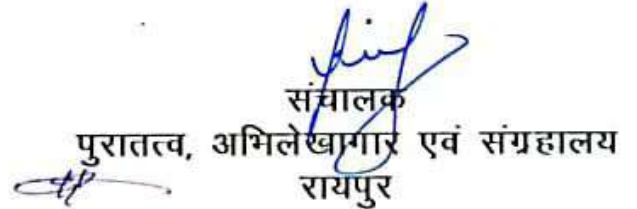 संचालक
पुरातत्व, अभिलेखागार एवं संग्रहालय
रायपुर